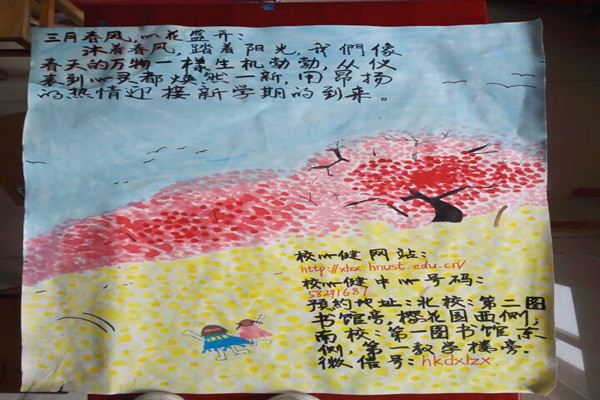 三月春风，心花盛开：
沐着春风，踏着阳光，我們像
春天的万物一樣生机勃勃，从仪
表到心灵都焕然一新，用昂扬
的热情迎接新学期的到来。
校心健网站：
http://xlzx.hnust.edu.cn/
校心健中心号码：
58291687
預約地址：北校：第二图
书馆旁，樱花园西侧；
南校：第一图书馆东
侧，第一教学楼旁。
微信号：hkdxlzx.